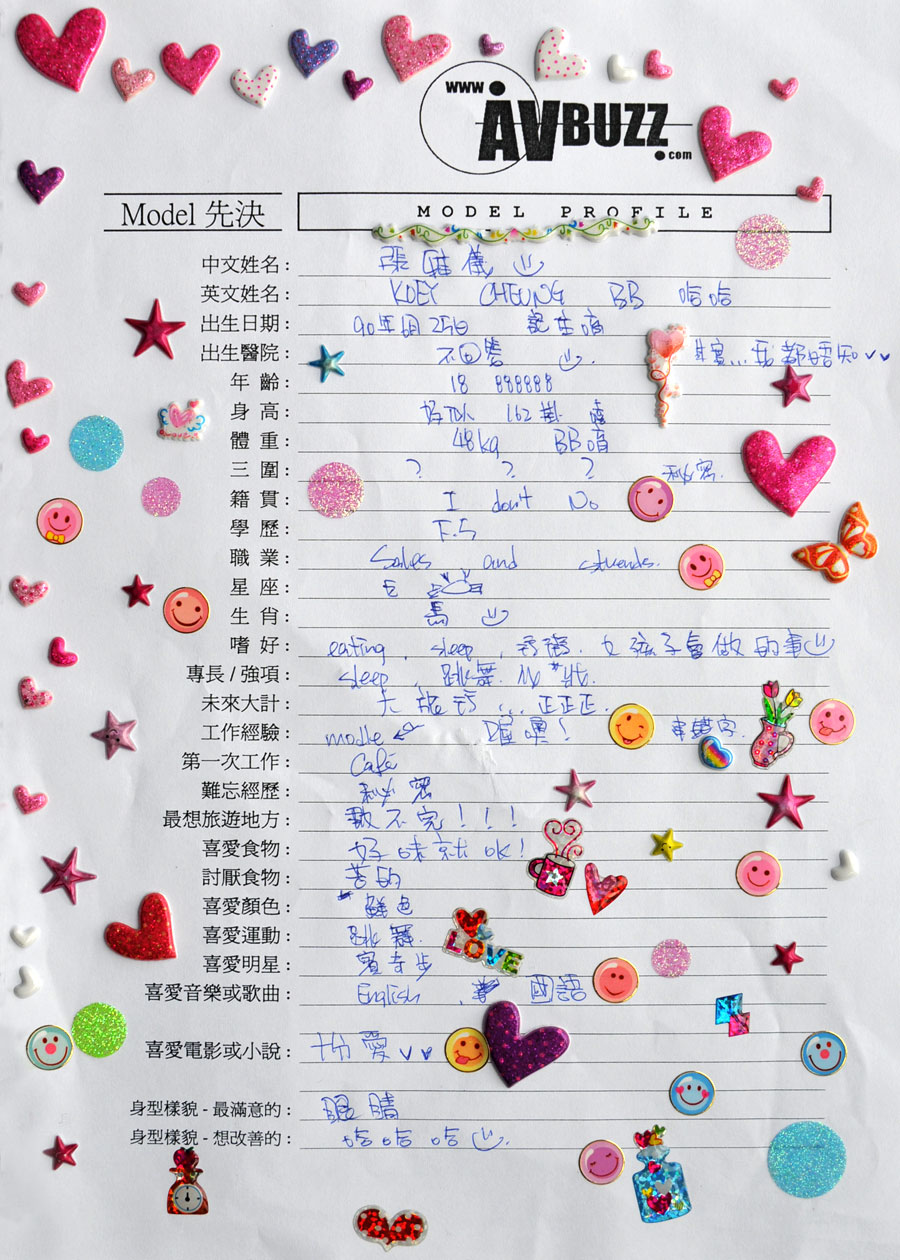 www.
AVBUZZ
.com
Model 先決
MODEL PROFILE
中文姓名: 張雅儀
英文姓名: KOEY CHEUNG BB 哈哈
出生日期: 90年 月25日
出生醫院: 不回答 其實... 我都唔知
年 齡: 18 888888
身 高: 好似 162掛
體 重: 48kg BB
三 圍: ? ? ? 秘密.
籍 貫: I don't No
學 歷: F.5
職 業: Sales and
星 座:
生 肖: 馬
嗜 好: eating, sleep, 女孩子會做的事
專長 / 強項: sleep, 跳舞.
未來大計: ...正正正.
工作經驗: modle
第一次工作: Café
難忘經歷: 秘密
最想旅遊地方: 數不完!!!
喜愛食物: 好味就OK!
討厭食物: 苦的
喜愛顏色: 鮮色
喜愛運動: 跳舞.
LOVE
喜愛明星:
喜愛音樂或歌曲: English, 國語
喜愛電影或小說: 十分愛
身型樣貌 - 最滿意的: 眼睛
身型樣貌 - 想改善的: 哈哈哈